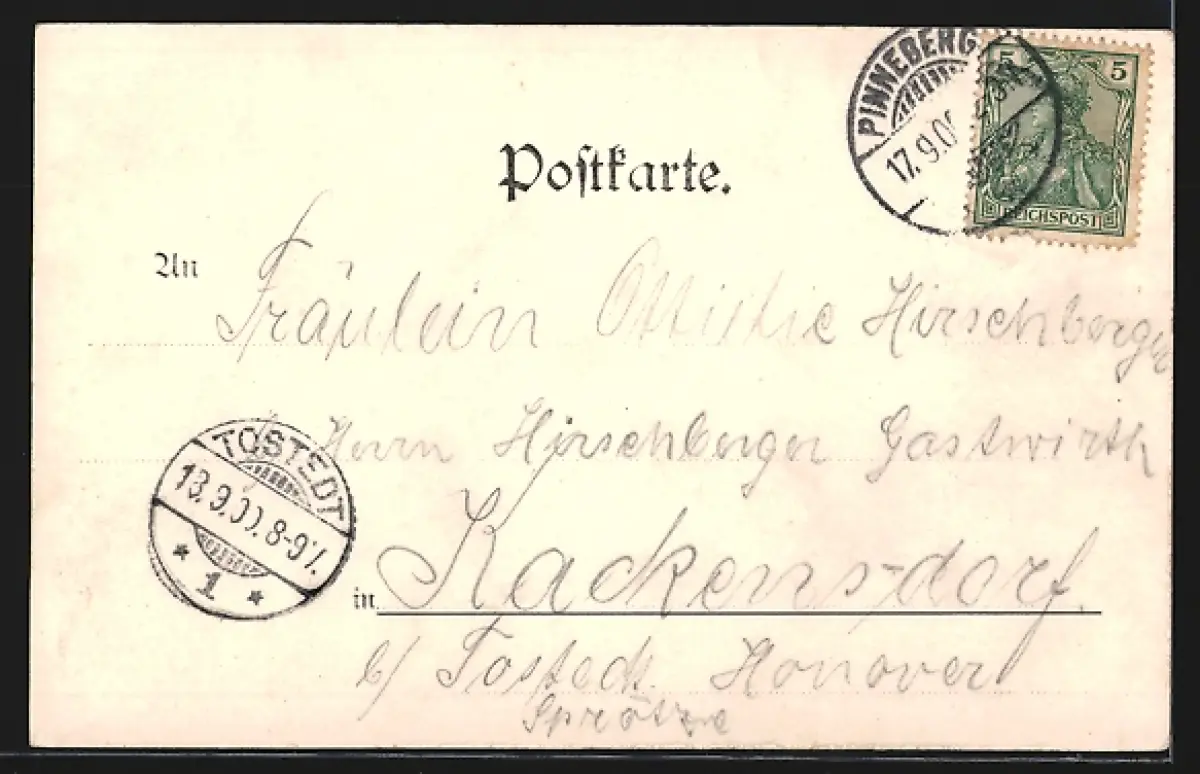 PINNEBERG
17.9.00
5 5
REICHSPOST
Postkarte.
An Fräulein Ottilie Hirschberger
Herrn Hirschberger Gastwirth
TOSTEDT
18.9.00.8-9V.
* 1 *
in Kackensdorf
b/ Tostedt Honover
Sprötze